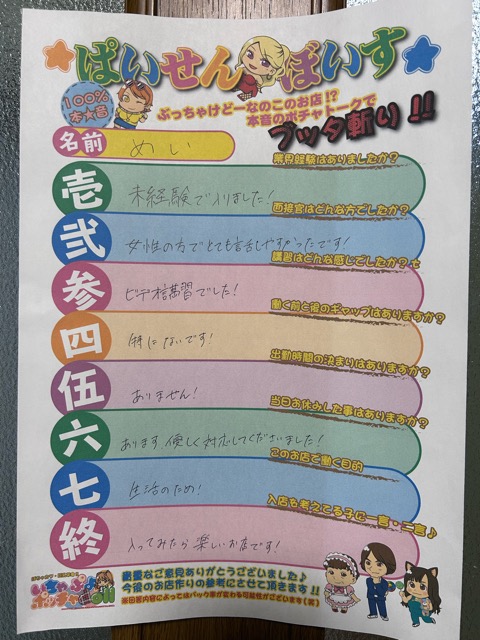 ぱいせんぼいす
100%
本★音
ぶっちゃけどーなのこのお店!?
本音のポチャトークで
ブッタ斬り!!
名前 めい
業界経験はありましたか?
壱 未経験で入りました!
面接官はどんな方でしたか?
弐 女性の方でとても話しやすかったです!
講習はどんな感じでしたか?
参 ビデオ講習でした!
働く前と後のギャップはありますか?
四 特にないです!
出勤時間の決まりはありますか?
伍 ありません!
当日お休みした事はありますか?
六 あります。優しく対応してくださいました!
このお店で働く目的
七 生活のため!
入店も考えてる子に一言・二言♪
終 入ってみたら楽しいお店です!
貴重なご意見ありがとうございました♪
今後のお店作りの参考にさせて頂きます!!
※回答内容によってはバック率が変わる可能性がございます(笑)
いちゃぷよ
ポッチャ